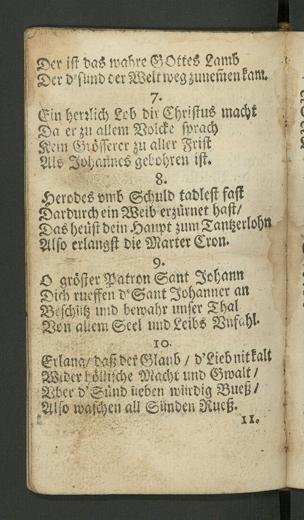 Der ist das wahre GOttes Lamb
Der d'sünd der Welt weg zunem̃en kam.
7.
Ein herzlich Lob dir Christus macht
Da er zu allem Volcke sprach
Kein Grösserer zu aller Frist
Als Johannes gebohren ist.
8.
Herodes vmb Schuld tadlest fast
Dardurch ein Weib erzürnet hast/
Das heüst dein Haupt zum Tantzerlohn
Also erlangst die Marter Cron.
9.
O gröster Patron Sant Johann
Dich rueffen d'Sant Johanner an
Beschütz und bewahr unser Thal
Von allem Seel und Leibs Vnfahl.
10.
Erlang/ daß der Glaub / d'Lieb nit kalt
Wider höllische Macht und Gwalt /
Aber d'Sünd üeben würdig Bueß /
Also waschen all Sünden Rueß.
11.